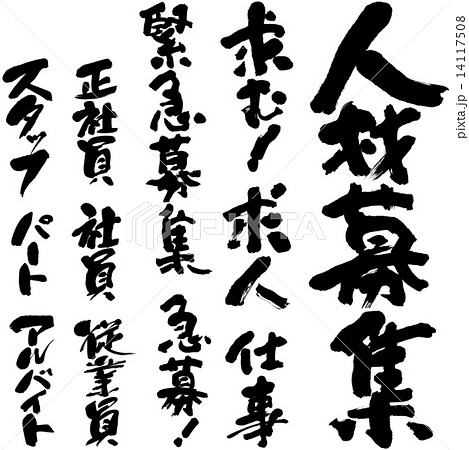 人材募集
求む！
求人
仕事
緊急募集
急募！
正社員
社員
従業員
スタッフ
パート
アルバイト
PIXTA
pixta.jp - 14117508